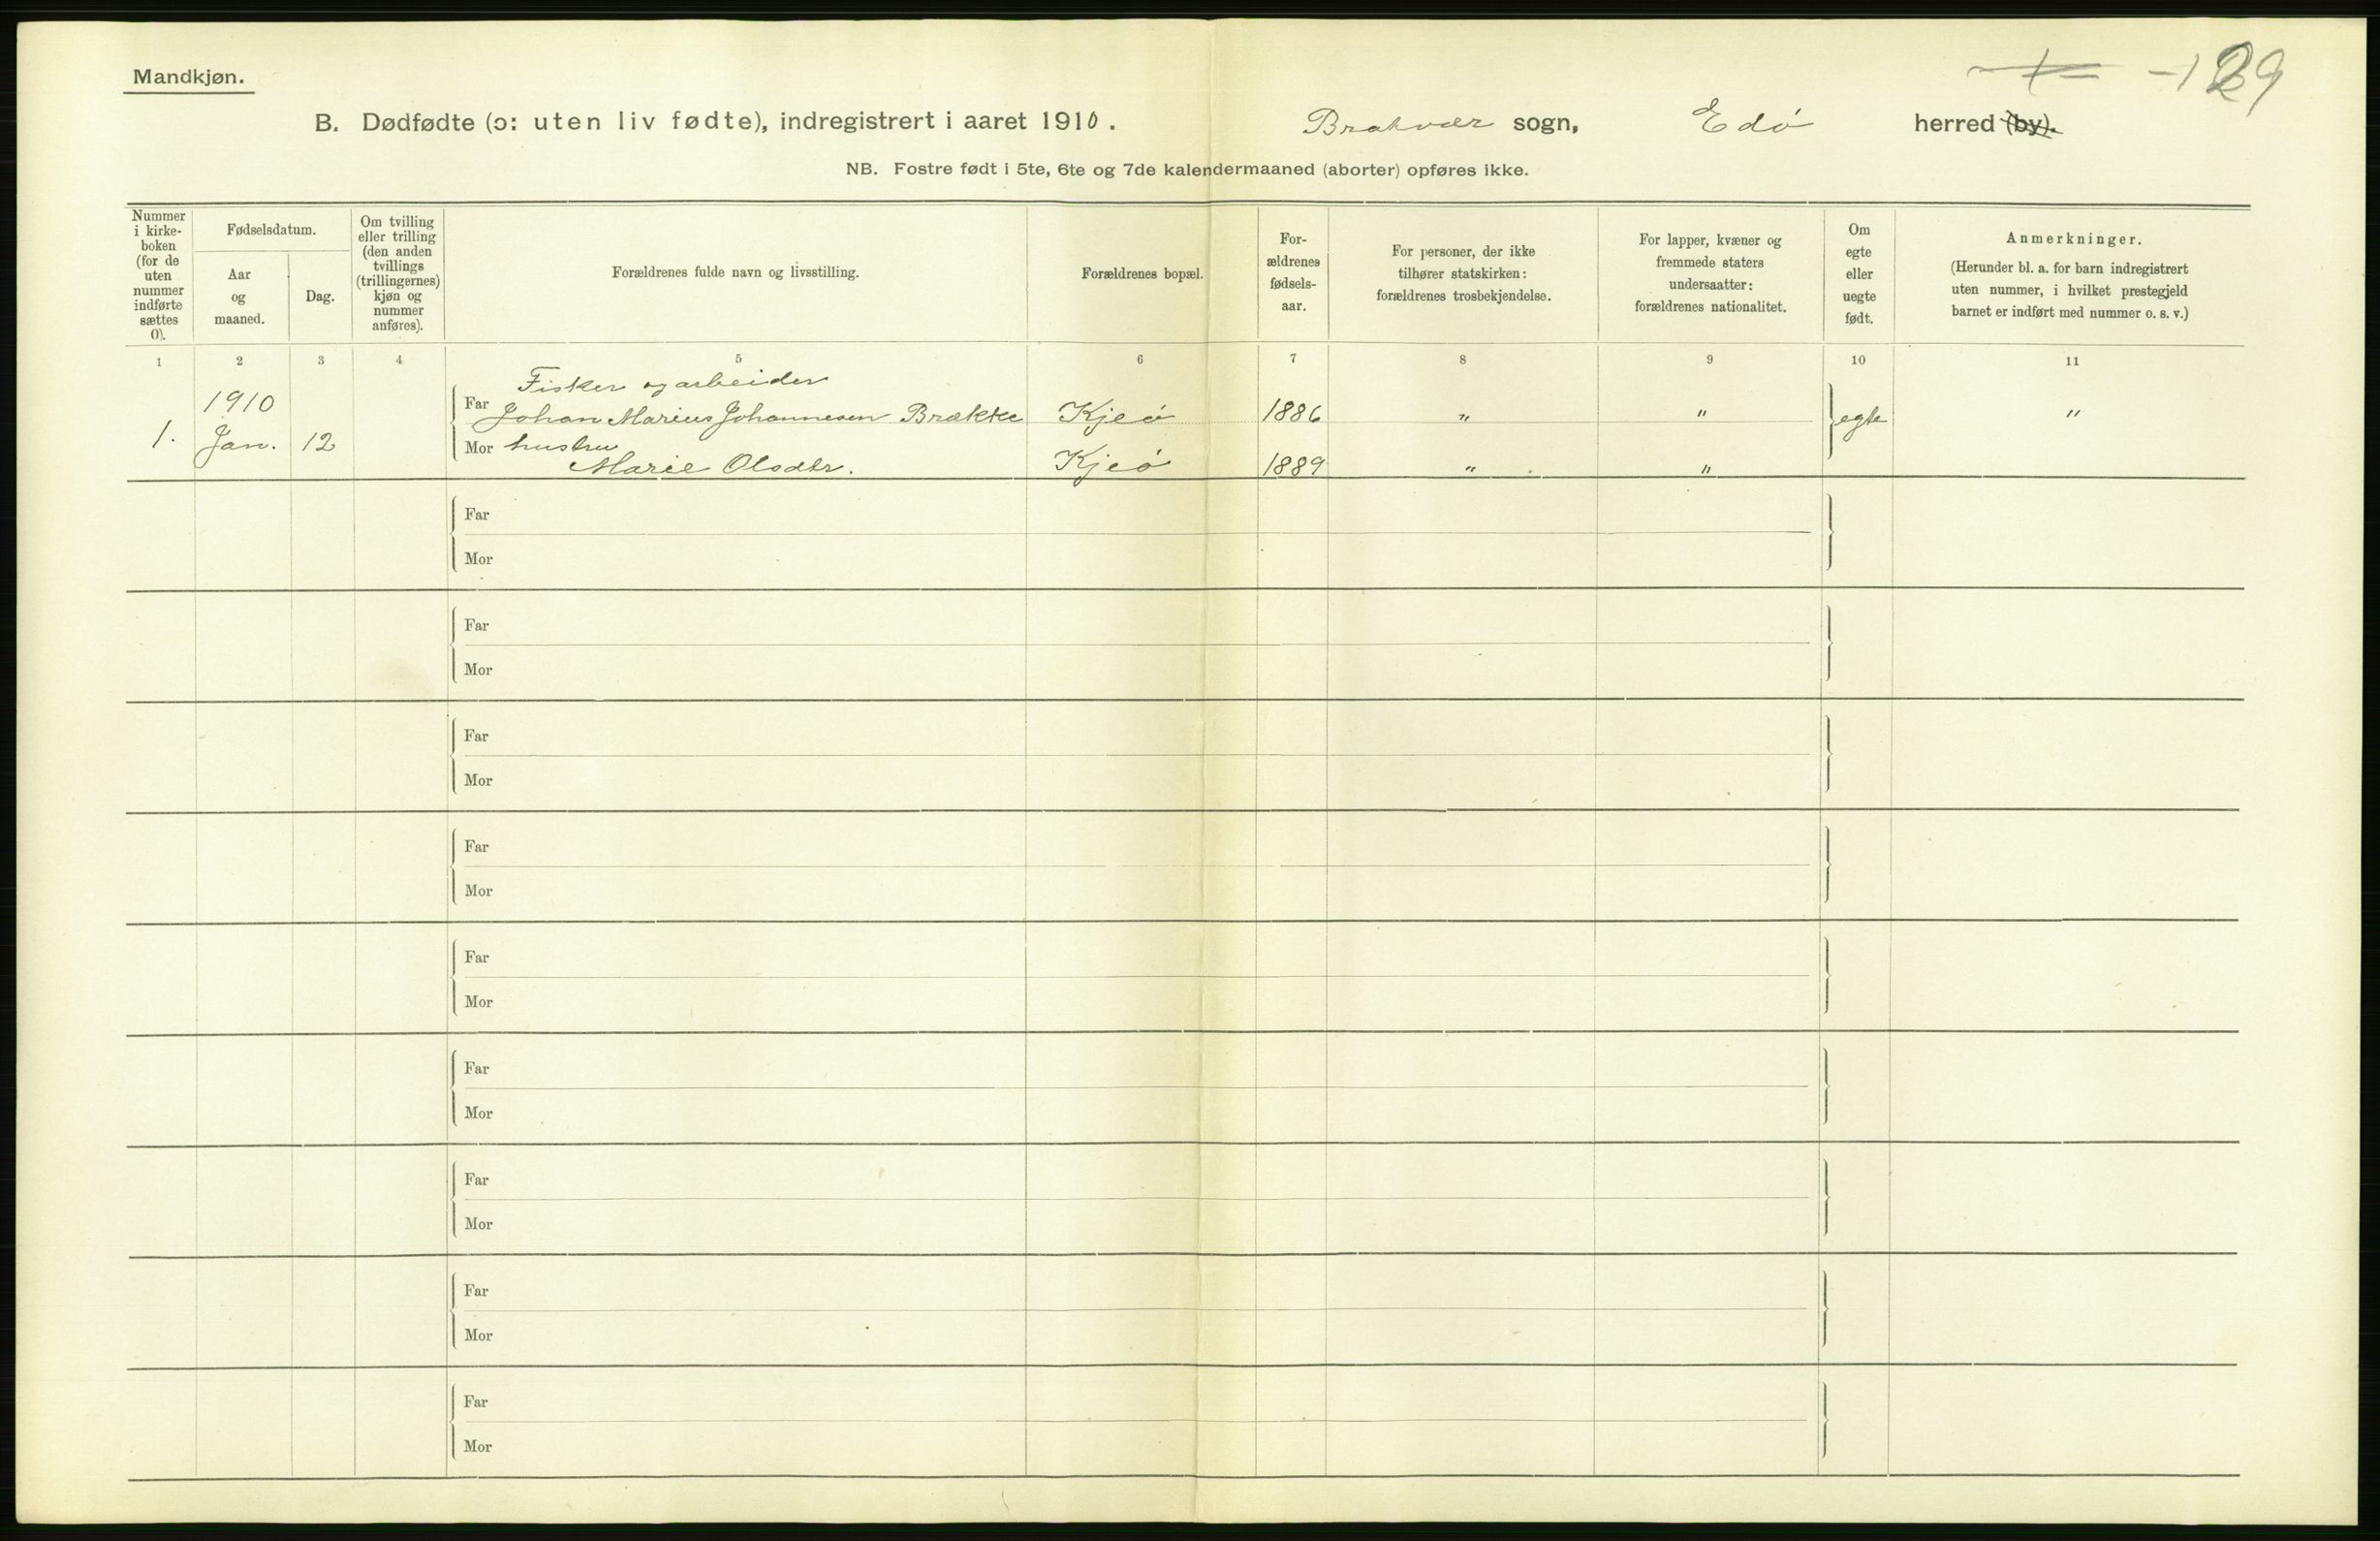 Mandkjøn.
B. Dødfødte (ɔ: uten liv fødte), indregistrert i aaret 1910. Brakvær sogn, Edø herred (by).
NB. Fostre født i 5te, 6te og 7de kalendermaaned (aborter) opføres ikke.
Nummer
i kirke-
boken
(for de
uten
nummer
indførte
sættes
0).
Fødselsdatum.
Aar
og
maaned.
Dag.
Om tvilling
eller trilling
(den anden
tvillings
(trillingernes)
kjøn og
nummer
anføres).
Forældrenes fulde navn og livsstilling.
Forældrenes bopæl.
For-
ældrenes
fødsels-
aar.
For personer, der ikke
tilhører statskirken:
forældrenes trosbekjendelse.
For lapper, kvæner og
fremmede staters
undersaatter:
forældrenes nationalitet.
Om
egte
eller
uegte
født.
Anmerkninger.
(Herunder bl. a. for barn indregistrert
uten nummer, i hvilket prestegjeld
barnet er indført med nummer o. s. v.)
1 2 3 4 5 6 7 8 9 10 11
Fisker og arbeider
1910 Far Johan Marius Johannesen Brække Kjeø 1886 " " egte "
1. Jan. 12 Mor hustru
Marie Olsdtr. Kjeø 1889 " "
Far
Mor
Far
Mor
Far
Mor
Far
Mor
Far
Mor
Far
Mor
Far
Mor
Far
Mor
Far
Mor